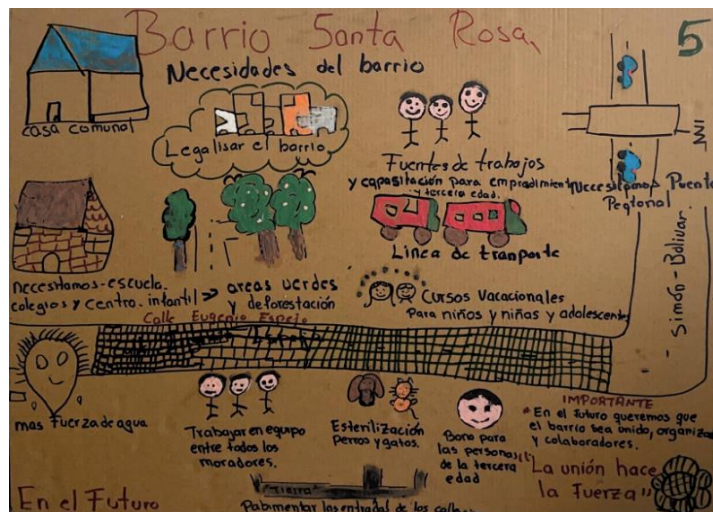 Barrio Santa Rosa,
5
Necesidades del barrio
casa comunal
Legalisar el barrio
Fuentes de trabajos
y capasitación para empradimient
y tercera edad.
Nuecesitamos Puente
Pegtonal
Simón-Bolivar.
Linea de tranporte
necesitamos-escuela.
colegios y centro. infantil
areas verdes
y deforestación
Cursos Vacacionales
Para niños y niñas y adolescente
Calle Eugenio Espejo
mas fuerza de agua
Trabajar en equipo
entre todos los
moradores.
Esterilización
Perros y gatos.
Bono para
las personas
de la tercera
edad
IMPORTANTE
En el futuro queremos que
el barrio sea unido, organiza
y colaboradores.
"La unión hace
la Fuerza"
En el Futuro
"Tierra"
Pabimentar las entradas de las calles